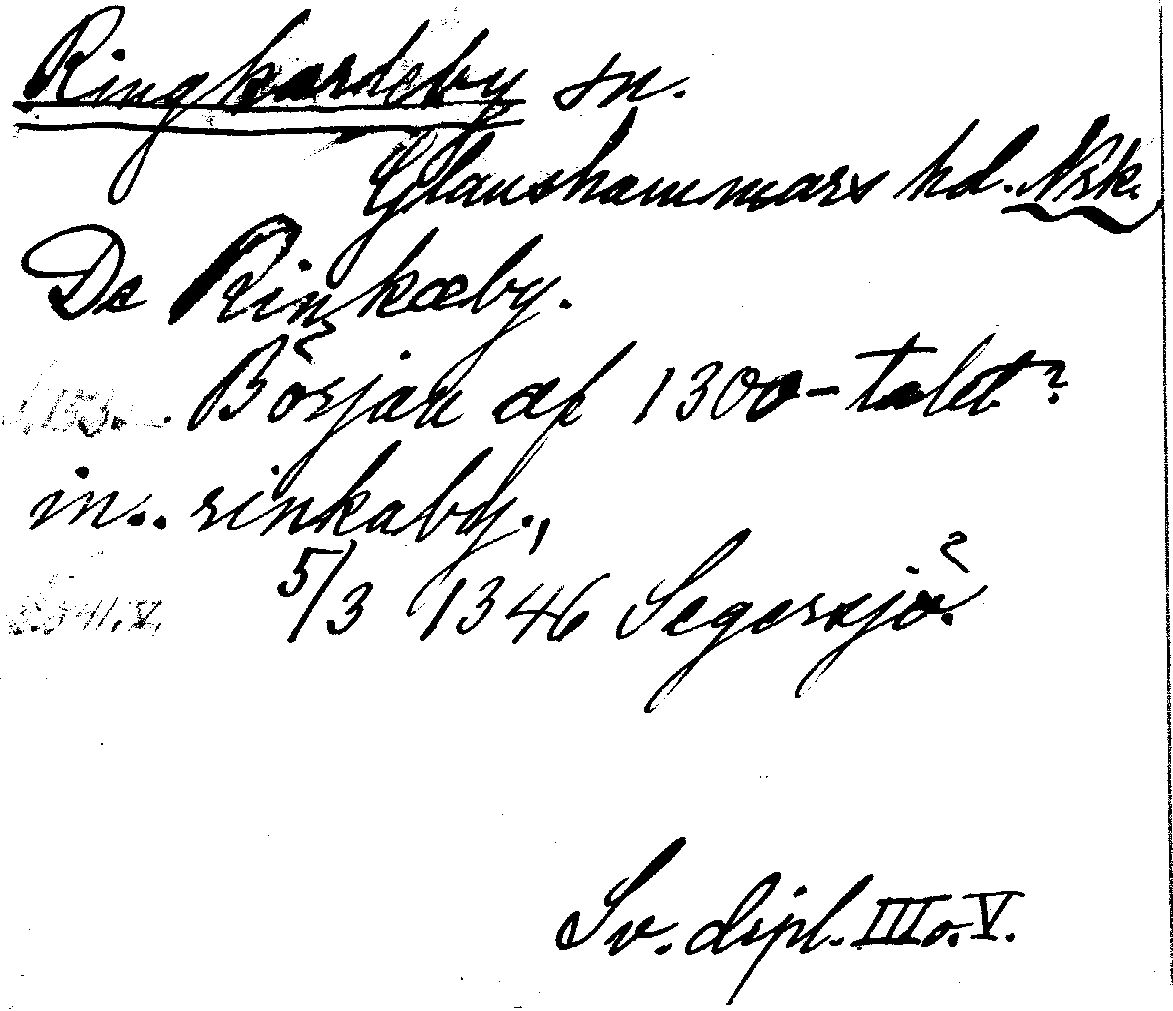 Ringkardeby sn.
Glanshammars hd. Nrk.
De Rinkæby.
Början af 1300-talet?
in.. rinkaby.,
5/3 1346 Segersjö.
Sv. dipl. III o. V.